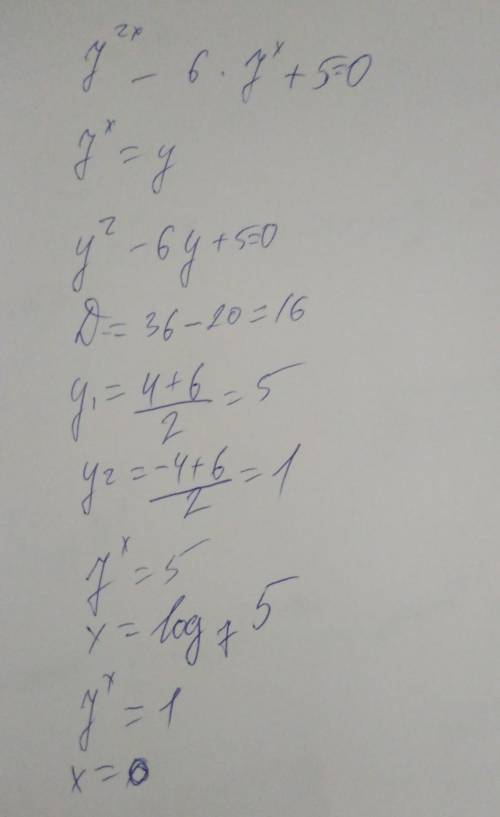 7^{2x} - 6 · 7^x + 5=0
7^x = y
y^2 - 6y + 5=0
D = 36 - 20 = 16
y_1 = \frac{4+6}{2} = 5
y_2 = \frac{-4+6}{2} = 1
7^x = 5
x = log_7 5
7^x = 1
x = 0